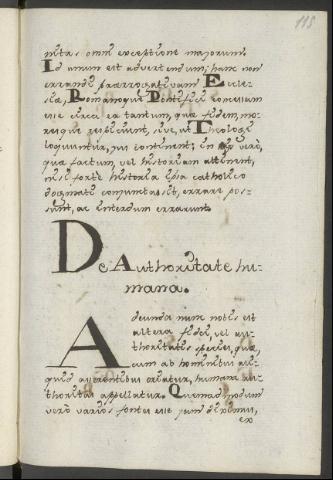 115
nitas omni exceptione majorum.
Id unum est advertendum, hanc non
errandi prærrogativam Eccle-
siæ, Romanoque Pontifici concessam
esse circa ea tantum, quæ fidem, mo-
resque respiciunt, sive, ut Theologi
loquuntur, jus continent; in vero,
quæ factum, vel historiam attinent,
nisi forte historia ipsa catholico
dogmati conjuncta sit, errare pos-
sunt, ac interdum errarunt.
De Authoritate hu-
mana.
Adeunda nunc nobis est
altera fidei, vel au-
thoritatis species, quæ,
cum ab hominibus ali-
quid asserentibus oriatur, humana au-
thoritas appellatur. Quemadmodum
vero varios fontes esse jam diximus,
ex